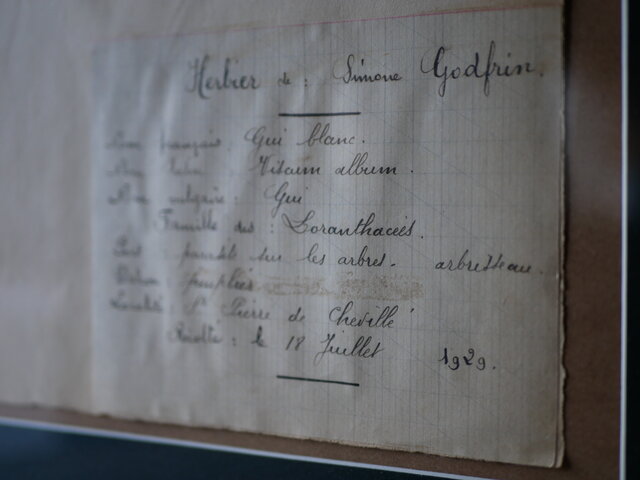 Herbier de : Simone Godfrin.
Nom français : Gui blanc.
Nom latin Viscum album.
Nom vulgaire : Gui
Famille des : Loranthacées.
sur les arbres - arbrisseau.
peuplier
Localité : St Pierre de Chevillé
Récolte : le 18 Juillet 1929.